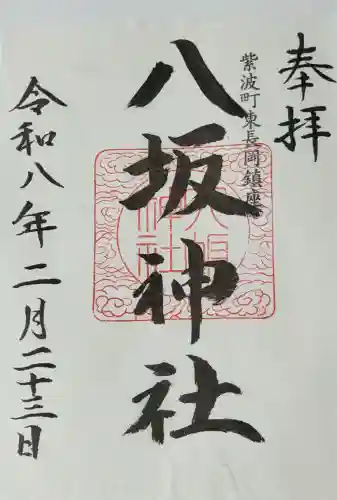 奉拝
紫波町東長岡鎮座
八坂神社
令和八年二月二十三日